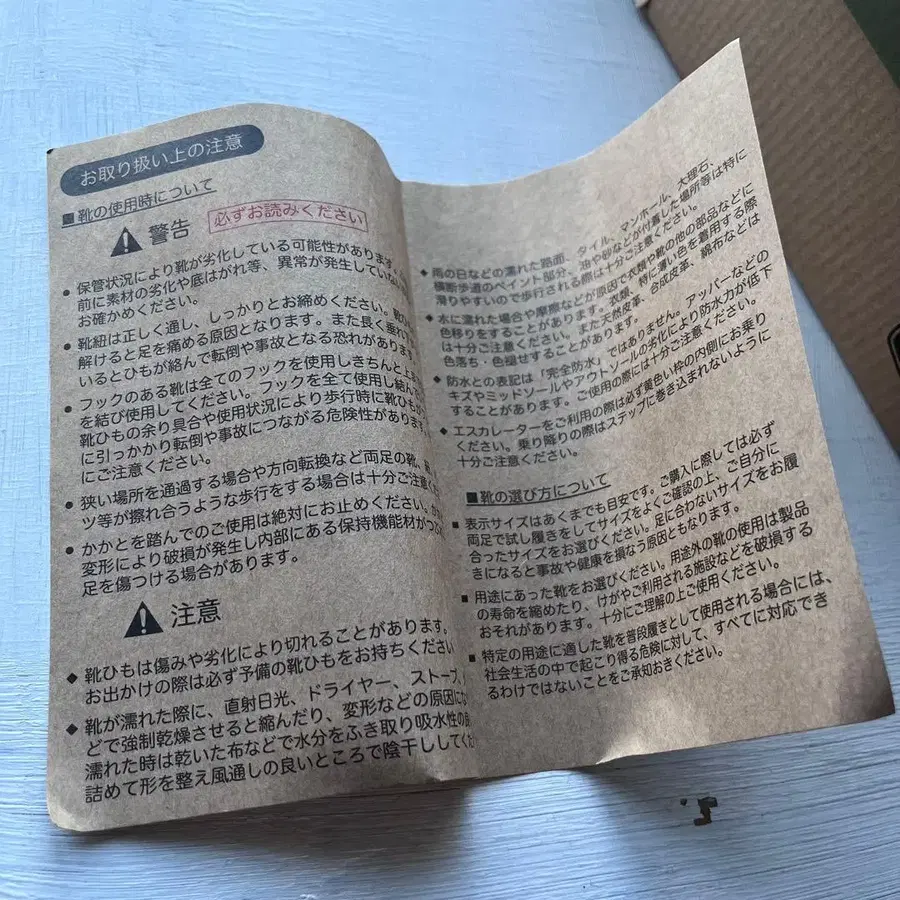 お取り扱い上の注意
■靴の使用時について
警告 必ずお読みください
● 保管状況により靴が劣化している可能性があります。
前に素材の劣化や底はがれ等、異常が発生していない
お確かめください。
● 靴紐は正しく通し、しっかりとお締めください。靴ひ
解けると足を痛める原因となります。また長く垂れ
いるとひもが絡んで転倒や事故となる恐れがあります
● フックのある靴は全てのフックを使用しきちんと上ま
を結び使用してください。フックを全て使用し結ん
靴ひもの余り具合や使用状況により歩行時に靴ひもが
に引っかかり転倒や事故につながる危険性があります
にご注意ください。
● 狭い場所を通過する場合や方向転換など両足の靴、
ツ等が擦れ合うような歩行をする場合は十分ご注意く
● かかとを踏んでのご使用は絶対にお止めください。か
変形により破損が発生し内部にある保持機能材がつ
足を傷つける場合があります。
注意
◆ 靴ひもは傷みや劣化により切れることがあります。
お出かけの際は必ず予備の靴ひもをお持ちください
◆ 靴が濡れた際に、直射日光、ドライヤー、ストーブ
どで強制乾燥させると縮んだり、変形などの原因にな
濡れた時は乾いた布などで水分をふき取り吸水性の
詰めて形を整え風通しの良いところで陰干ししてくだ
◆ 雨の日などの濡れた路面、タイル、マンホール、大理石、
横断歩道のペイント部分、油や砂などが付着した場所等は特に
滑りやすいので歩行される際は十分ご注意ください。
◆ 水に濡れた場合や摩擦などが原因で衣類や靴の他の部品などに
色移りをすることがあります。衣類、特に薄い色を着用する際
は十分ご注意ください。また天然皮革、合成皮革、綿布などは
色落ち・色褪せすることがあります。
◆ 防水との表記は「完全防水」ではありません。アッパーなどの
キズやミッドソールやアウトソールの劣化により防水力が低下
することがあります。ご使用の際には十分ご注意ください。
◆ エスカレーターをご利用の際は必ず黄色い枠の内側にお乗り
ください。乗り降りの際はステップに巻き込まれないように
十分ご注意ください。
■靴の選び方について
■ 表示サイズはあくまでも目安です。ご購入に際しては必ず
両足で試し履きをしてサイズをよくご確認の上、ご自分に
合ったサイズをお選びください。足に合わないサイズをお履
きになると事故や健康を損なう原因ともなります。
■ 用途にあった靴をお選びください。用途外の靴の使用は製品
の寿命を縮めたり、けがやご利用される施設などを破損する
おそれがあります。十分にご理解の上ご使用ください。
■ 特定の用途に適した靴を普段履きとして使用される場合には、
社会生活の中で起こり得る危険に対して、すべてに対応でき
るわけではないことをご承知おきください。